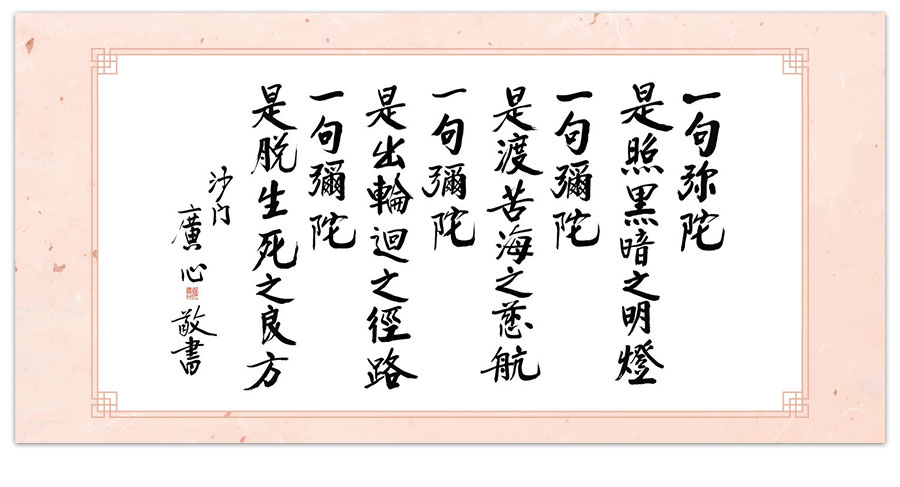 一句弥陀
是照黑暗之明燈
一句彌陀
是渡苦海之慈航
一句彌陀
是出輪迴之徑路
一句彌陀
是脫生死之良方
沙门
廣心
敬書